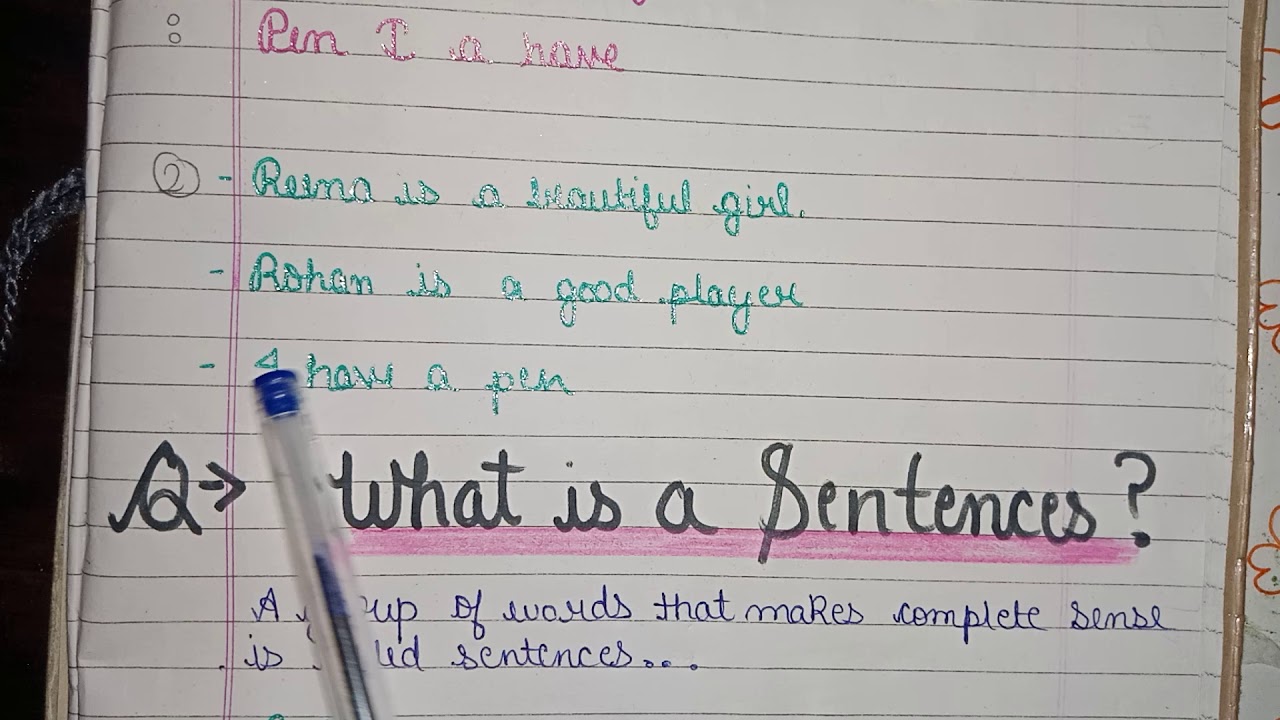 : Pen I a have
② - Reema is a beautiful girl.
- Rohan is a good player
- I have a pen
Q→ What is a Sentences?
A of words that makes complete sense
is sentences...